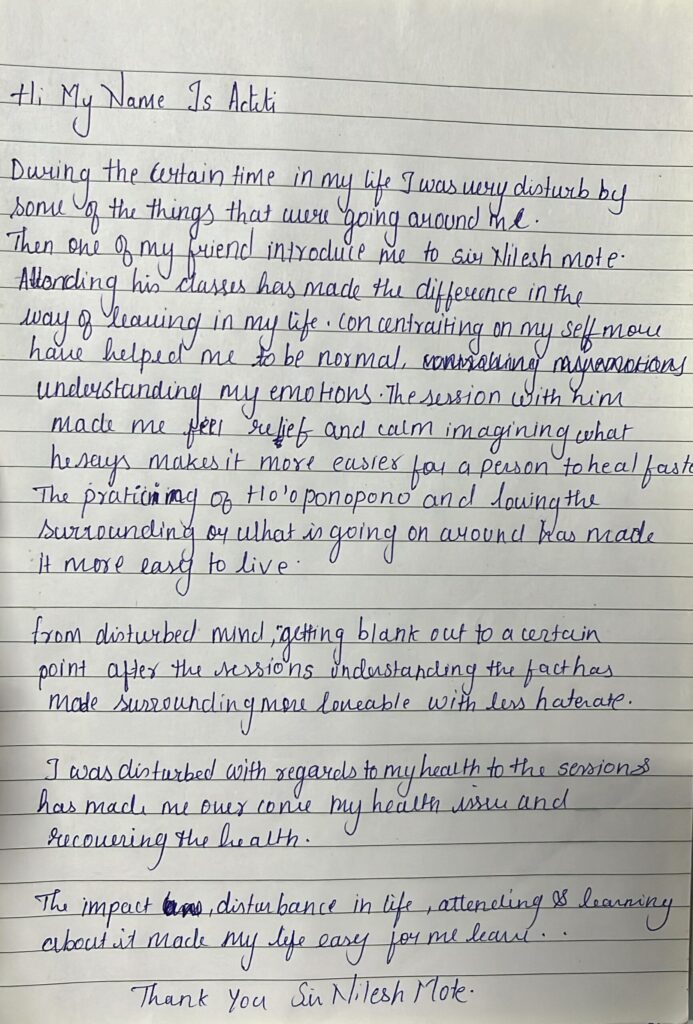 Hi My Name Is Aditi
During the certain time in my life I was very disturb by
some of the things that were going around me.
Then one of my friend introduce me to sir Nilesh Mote.
Attending his classes has made the difference in the
way of leaving in my life. Concentraiting on my self more
have helped me to be normal,
understanding my emotions. The session with him
made me feel relief and calm imagining what
he says makes it more easier for a person to heal faste
The praticing of Ho'oponopono and loving the
surrounding or what is going on around has made
it more easy to live.
from disturbed mind, getting blank out to a certain
point after the sessions understanding the fact has
made surrounding more loveable with less haterate.
I was disturbed with regards to my health to the sessions
has made me over come my health issue and
recovering the health.
The impact, disturbance in life, attending & learning
about it made my life easy for me leave..
Thank You Sir Nilesh Mote.